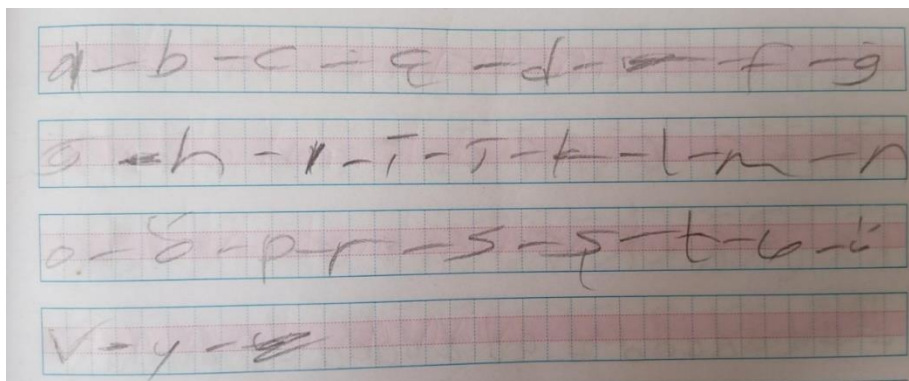 a - b - c - ç - d - - f - g
ğ - h - ı - i - j - k - l - m - n
o - ö - p - r - s - ş - t - u - ü
v - y -